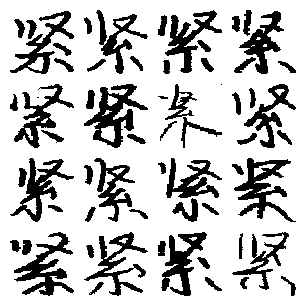 紧紧紧紧
紧紧紧紧
紧紧紧紧
紧紧紧紧